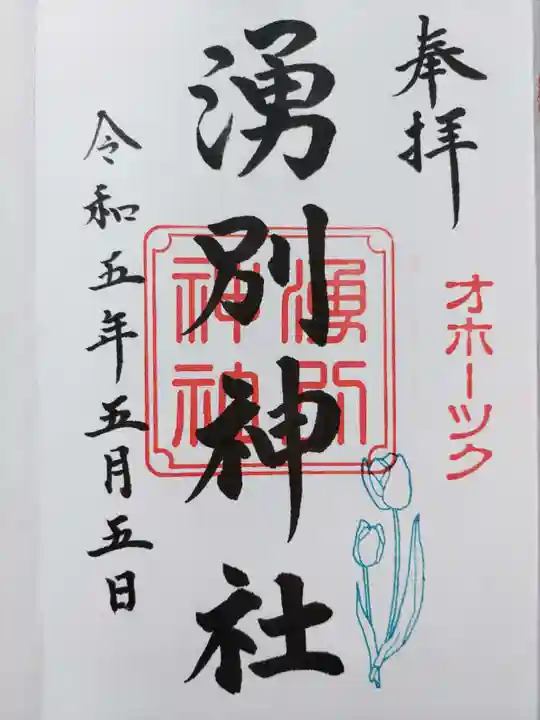 奉拝
オホーツク
湧別神社
湧別
神社
令和五年五月五日